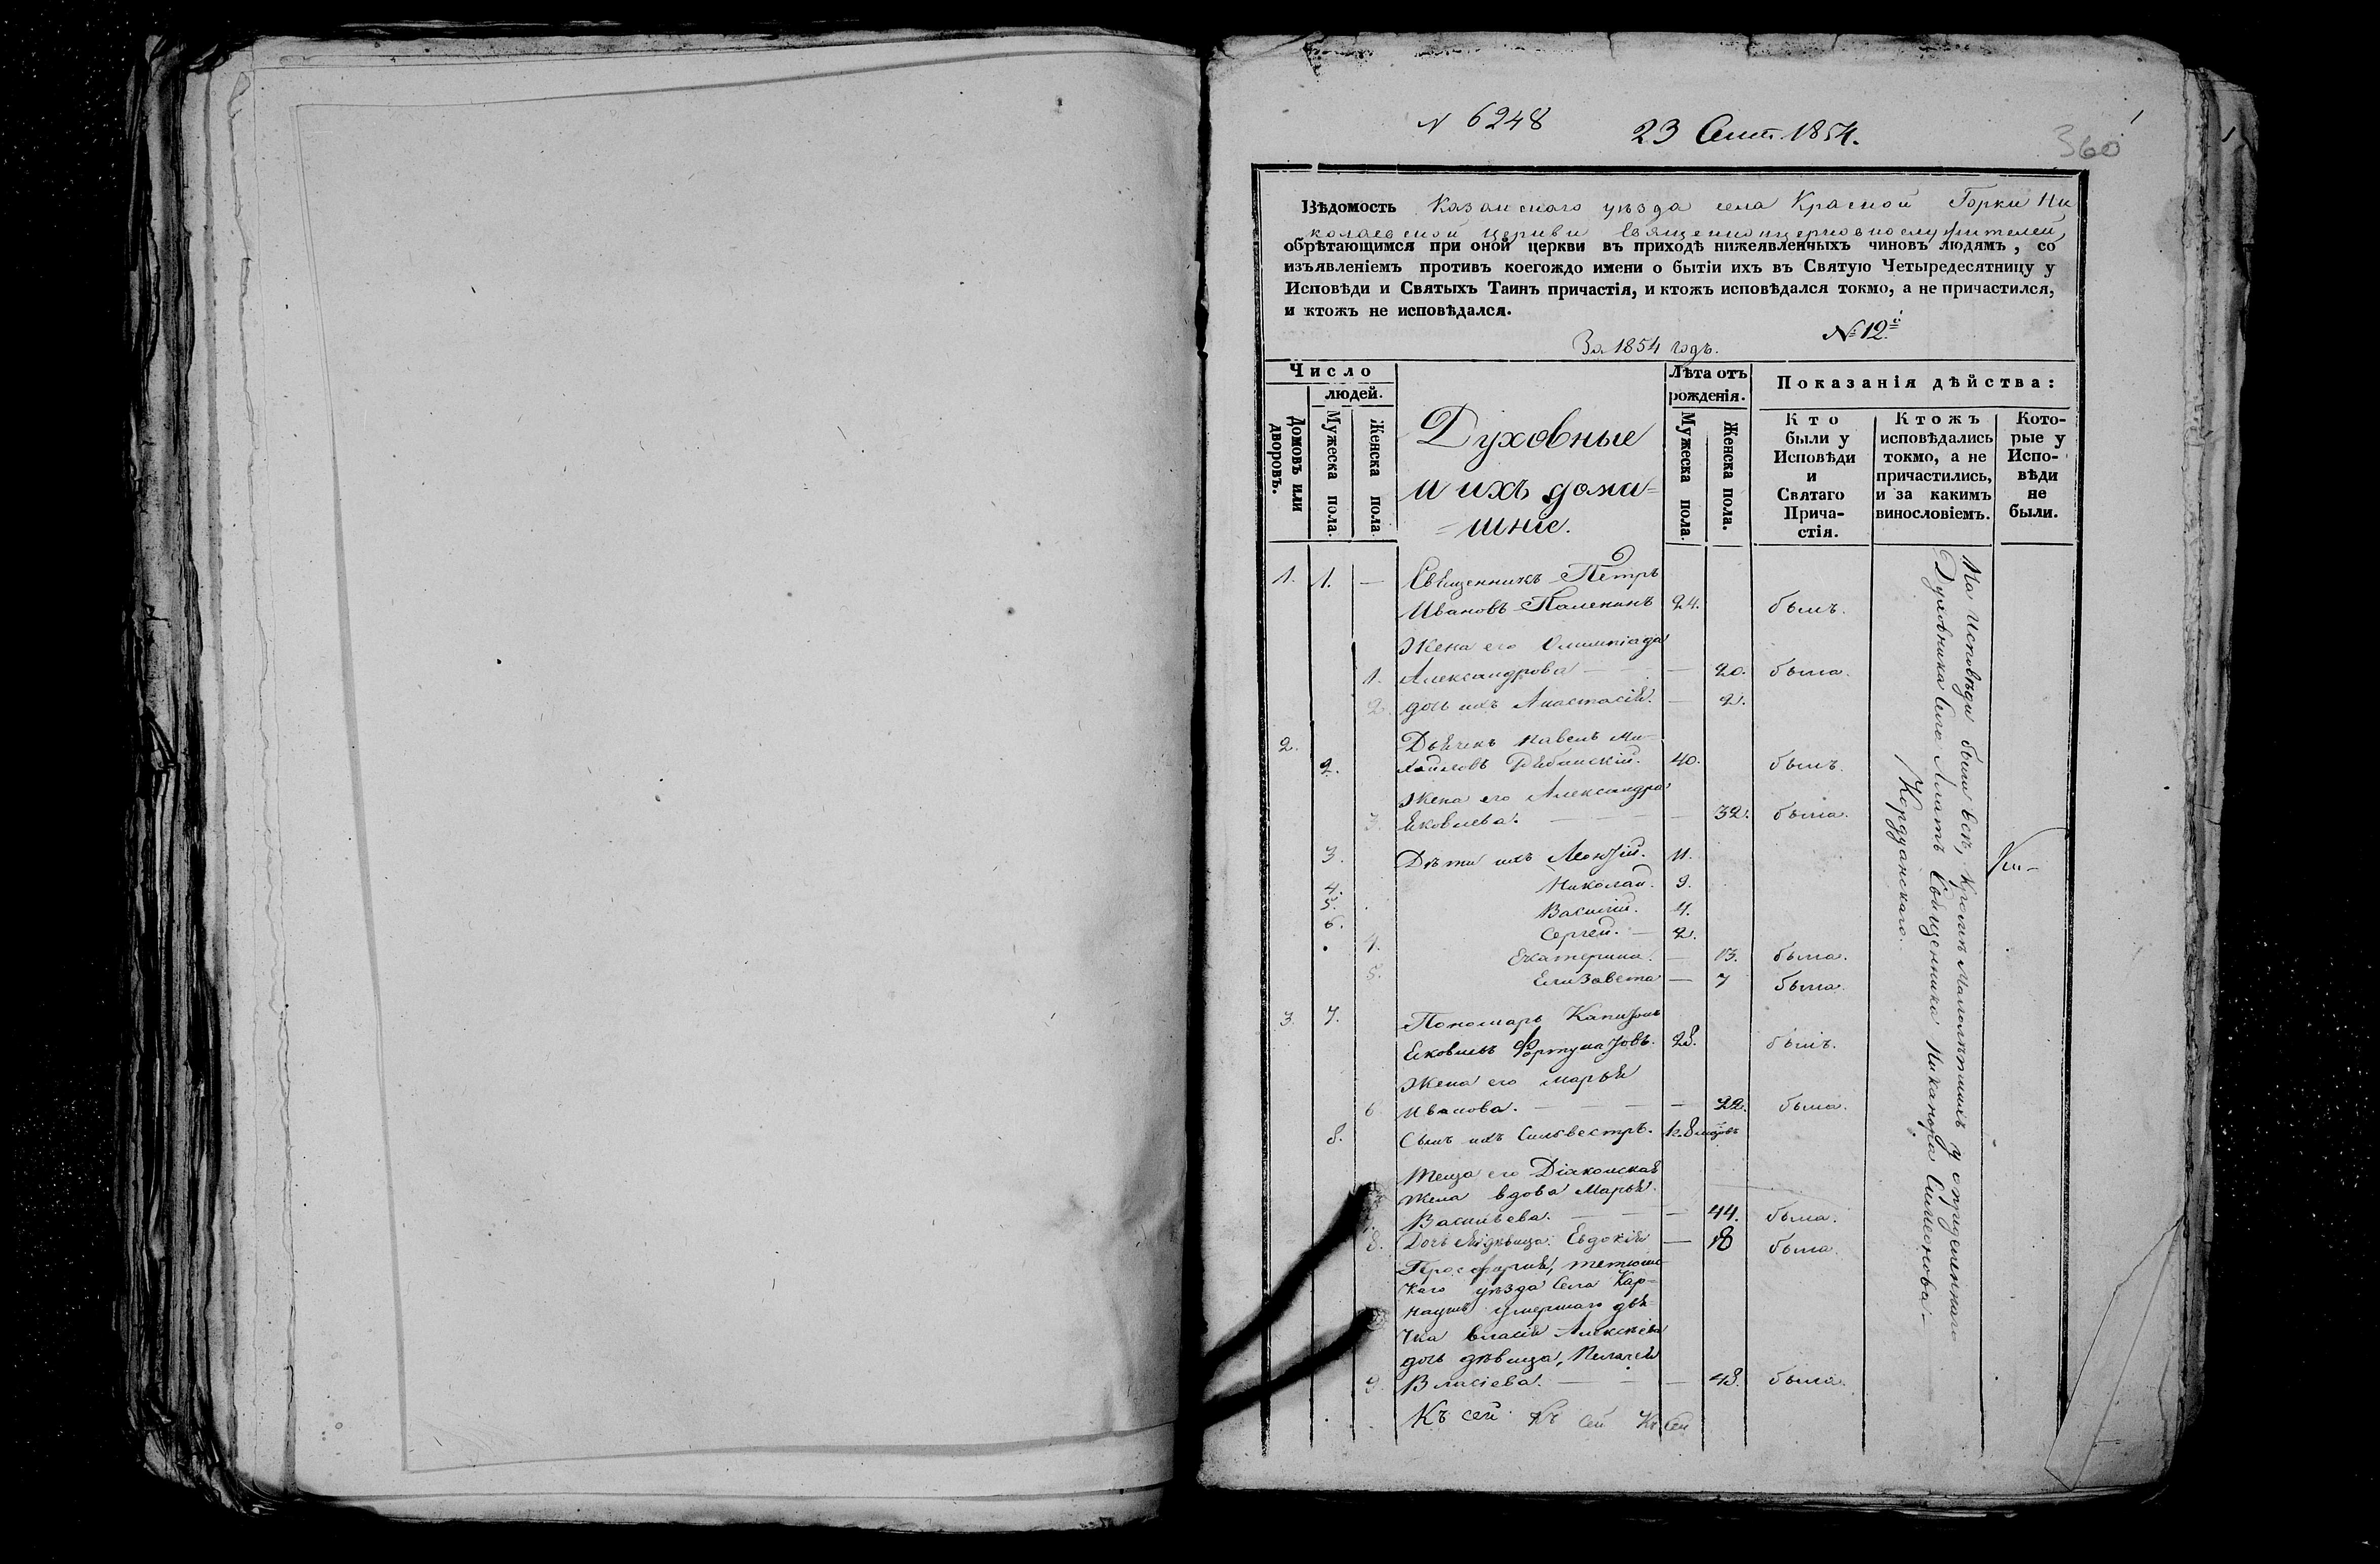 N 6248
23 Сент. 1854.
360
Вѣдомость Казанскаго уѣзда села Красной Горки Ни
колаевской церкви Священноцерковнослужителей,
обрѣтающимся при оной церкви въ приходѣ нижеявленныхъ чиновъ людямъ, со
изъявленіемъ противъ коегождо имени о бытіи ихъ въ Святую Четыредесятницу у
Исповѣди и Святыхъ Таинъ причастія, и ктожъ исповѣдался токмо, а не причастился,
и ктожъ не исповѣдался.
№ 12й
За 1854 годъ.
Число
людей.
Домовъ или дворовъ.
Мужеска пола.
Женска пола
Духовные
и ихъ дома=
=шніе.
Лѣта отъ
рожденія.
Мужеска пола.
Женска пола.
Показанія дѣйства:
Кто
были у
Исповѣди
и
Святаго
Прича-
стія.
Ктожъ
исповѣдались
токмо, а не
причастились,
и за какимъ
винословіемъ.
Кото-
рые у
Испо-
вѣди
не
были.
1. 1. — Священникъ Петръ
Ивановъ 24. былъ.
Жена его Олимпіада
1. Александрова — 20. была.
2. дочь ихъ Анастасія. — 2.
2. Дьячекъ Павелъ Ми-
2. хайловъ 40. былъ.
Жена его Александра
3. Яковлева. — 32. была.
3. Дѣти ихъ Леонтій. 11.
4. Николай. 9.
5. Василій. 4.
6. Сергей. — 2.
4. Екатерина. — 13. была.
5. Елизавета — 7 была.
3. 7. Пономарь Капитонъ
Яковлевъ Фортунатовъ. 28. былъ.
Жена его Марья
6. Иванова. — 22. была.
8. Сынъ ихъ Сильвестръ. 8
Теща его Діаконская
жена вдова Марья
7. Васильева. — 44. была.
8. Дочь дѣвица Евдокія — 18 была.
Просфорня, тетюшс-
каго уѣзда села Кар-
наушъ умершаго дья-
чка Власія Алексѣева
дочь дѣвица, Пелагея
9. Власіева. — 48. была.
Къ сей Къ сей Къ сей
На Исповѣди были всѣ, кромѣ малолѣтнихъ у опредѣленнаго
Духовника Села Священника Никанора Симеонова